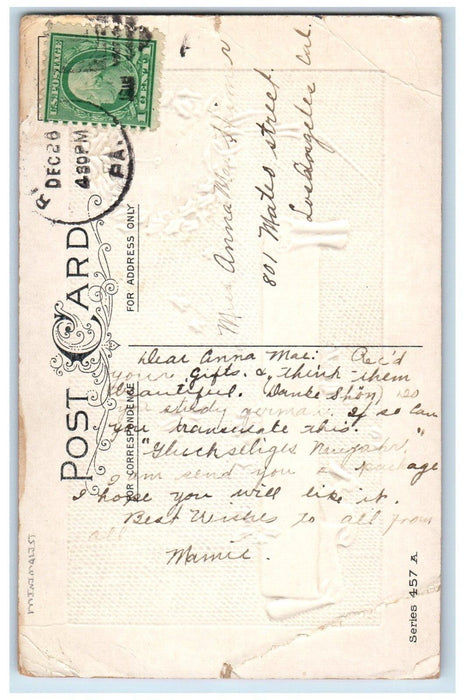 U.S. POSTAGE
1 CENT 1
DEC 26
4 30 PM
PA.
POST CARD
FOR ADDRESS ONLY
FOR CORRESPONDENCE
Miss Anna Mae
801 Mateo street
Los Angeles Cal.
Dear Anna Mae: Rec'd
your Gifts. & think them
beautiful. Danke Shön) Do
you study german. If so can
you translate this.
"Gluckseliges Neujahr"
I am send you a package
I hope you will like it.
Best Wishes to all from
all
Mamie
Series 457 A